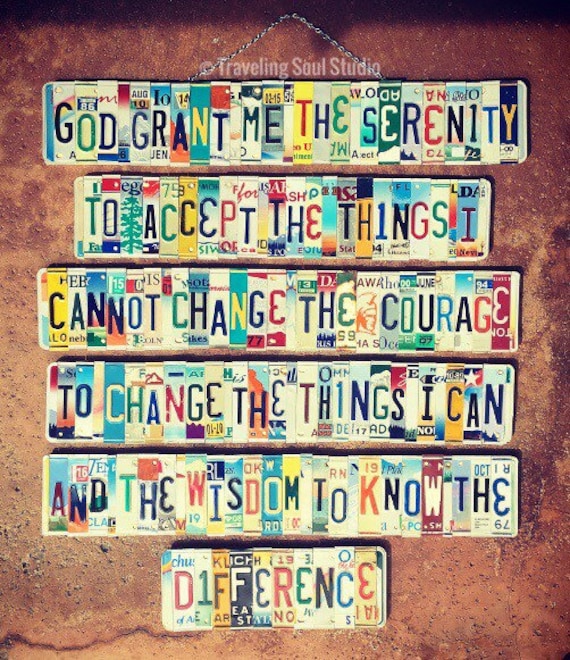 © Traveling Soul Studio
GOD GRANT ME THE SERENITY
TO ACCEPT THE TH1NGS I
CANNOT CHANGE THE COURAGE
TO CHANGE THE TH1NGS I CAN
AND THE WISDOM TO KNOW THE
D1FFERENCE